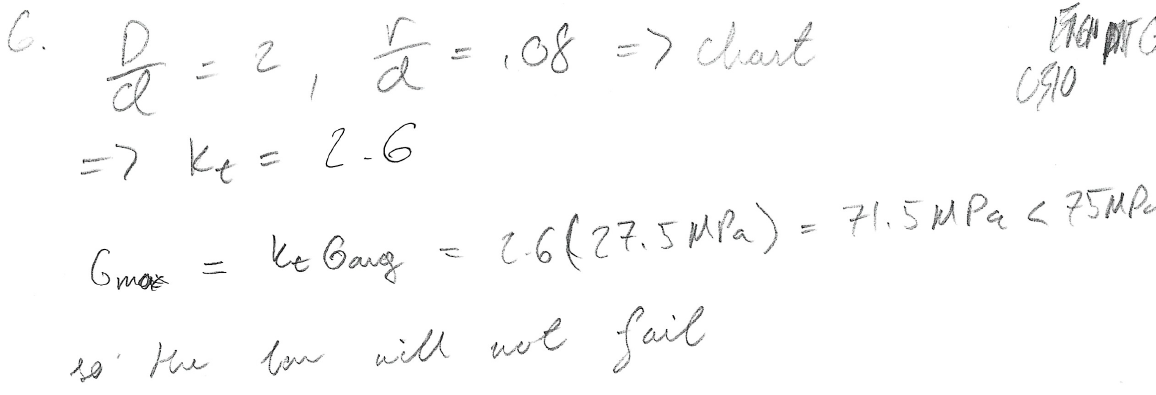 6. D/d = 2, r/d = .08 => chart
=> Kt = 2.6
σmax = Kt σavg = 2.6(27.5 MPa) = 71.5 MPa < 75 MPa
so the bar will not fail